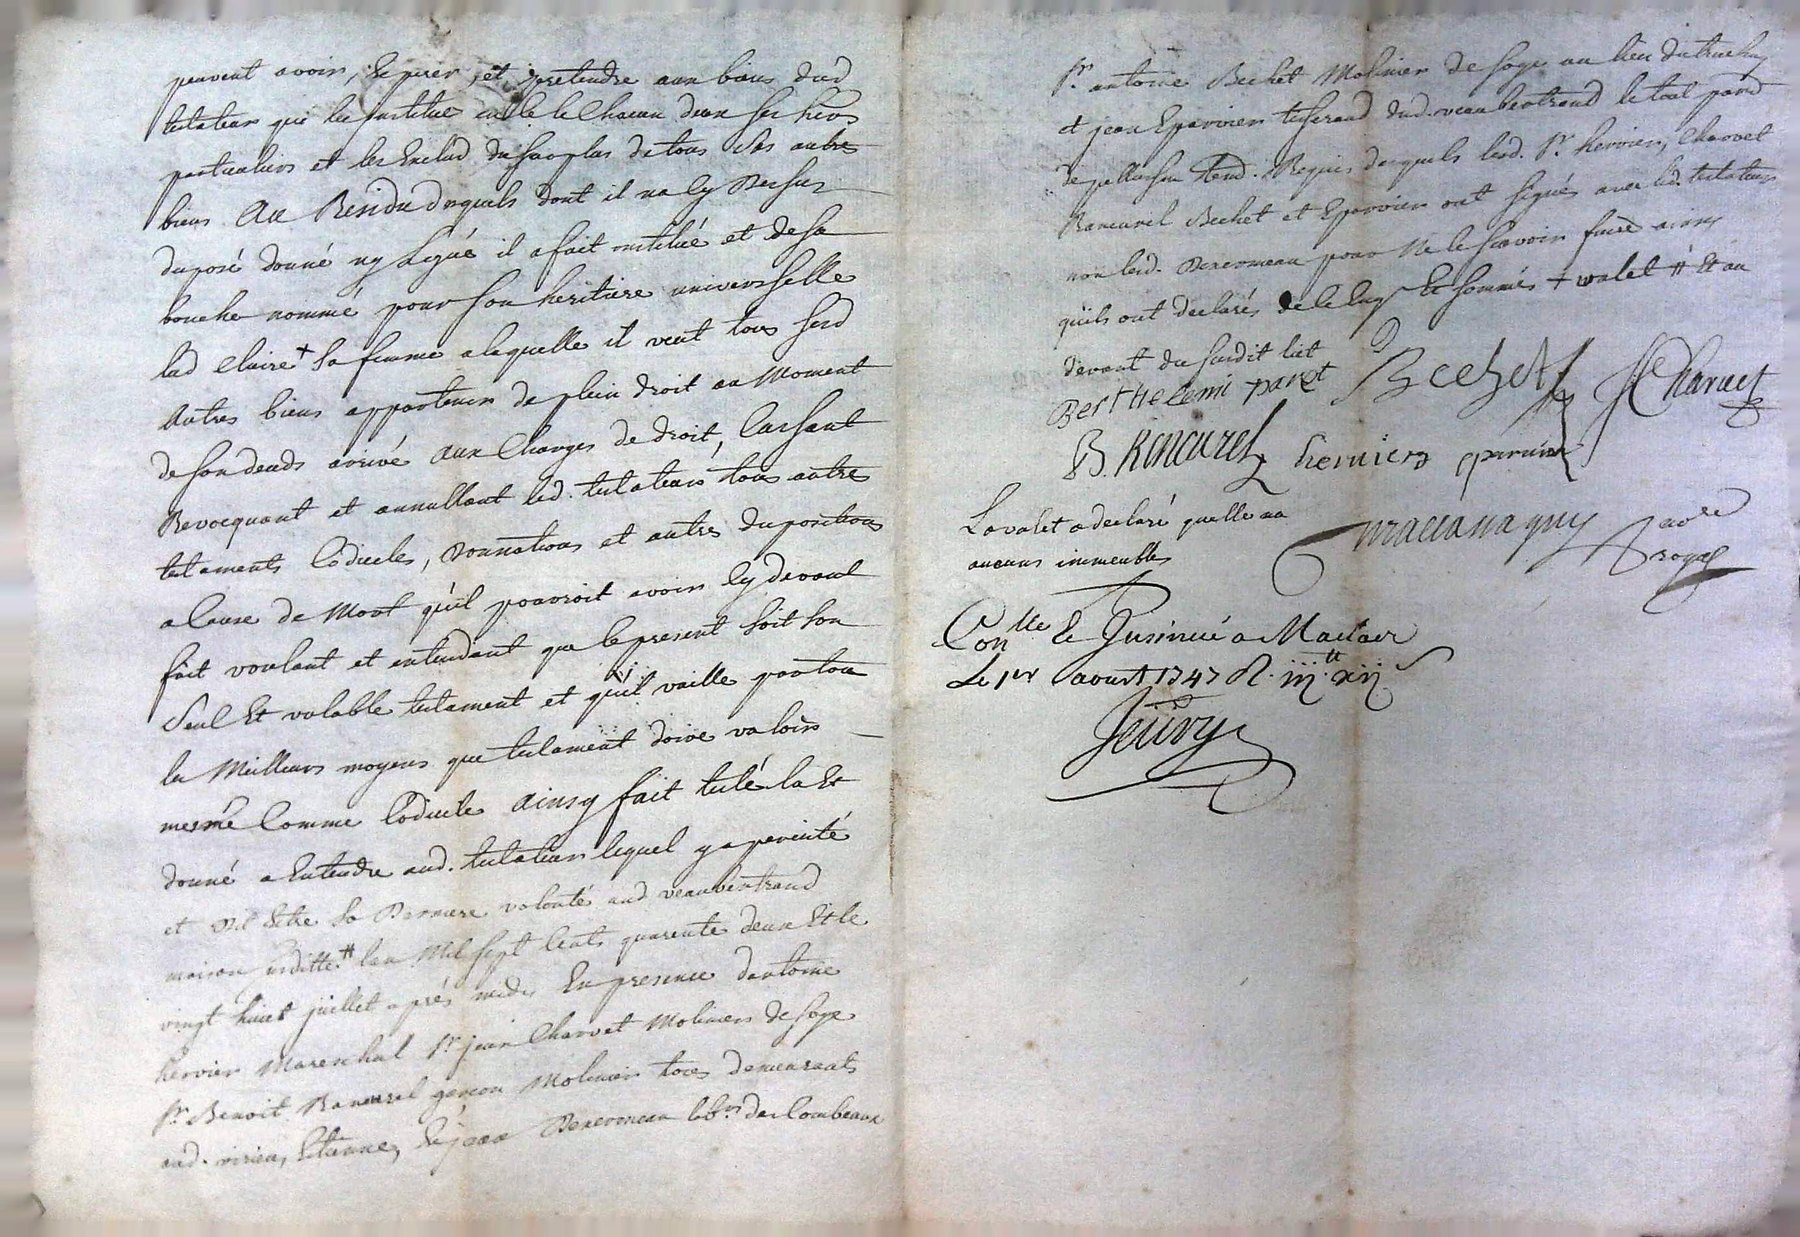 peuvent avoir, Esperer, et pretendre aux biens dud
testateur qui les institue en icelle Chacun deux ses heirs
particuliers et les Exclud du surplus de tous ses autres
biens. Au Residu desquels dont il na cy Dessus
disposé donné ny Legué il a fait institué et de sa
bouche nommé pour son heritiere universselle
lad Claire + sa femme a laquelle il veut tous sesd
Autres biens appartenir de plein droit au Moment
de son deceds arrivé aux Charges de droit, Cassant
Revocquant et annullant led. testateur tous autres
testaments Codicles, Donnations et autres dispositions
a Cause de Mort qu'il pourroit avoir cy devant
fait voulant et entendant que le present soit son
Seul Et valable testament et qu'il vaille par tous
les Meilleurs moyens que testament doive valoir
mesme Comme Codicile Ainsy fait testé la Et
donné a Entendre aud. testateur lequel y a percisté
et dit Estre sa Derniere volonté aud veaubertrand
maison susditte # lan Mil sept Cents quarente deux Et le
vingt huict juillet aprés midi En presence dantoine
hervier Mareschal Sr jean Charvet Molinier de Soye
Sr. Benoit Rancurel garçon Molinier tous demeurants
aud. virieu, Etienne, Et jean
Sr. antoine Bechet Molinier de soye au lieu du
et jean Eparvier tisserand dud. veaubertrand le tout parr
de pellussin tesd. Requis desquels lesd. Sr. hervier, Charvet
Rancurel Bechet et Eparvier ont signés avec led. testateur
non lesd. pour Ne le sçavoir faire ainsy
qu'ils ont declarés de ce Enqs Et sommés + valet # Et au
devant du susdit lict
BerTHelemi paret Bechet J Charvet
B. Rancurel hervier eparvier
La valet a declaré quelle na
aucuns immeubles
nore
royal
Conlle Et Insinué a Maclas
Le 1er aoust 1747 R. iij tt xij s